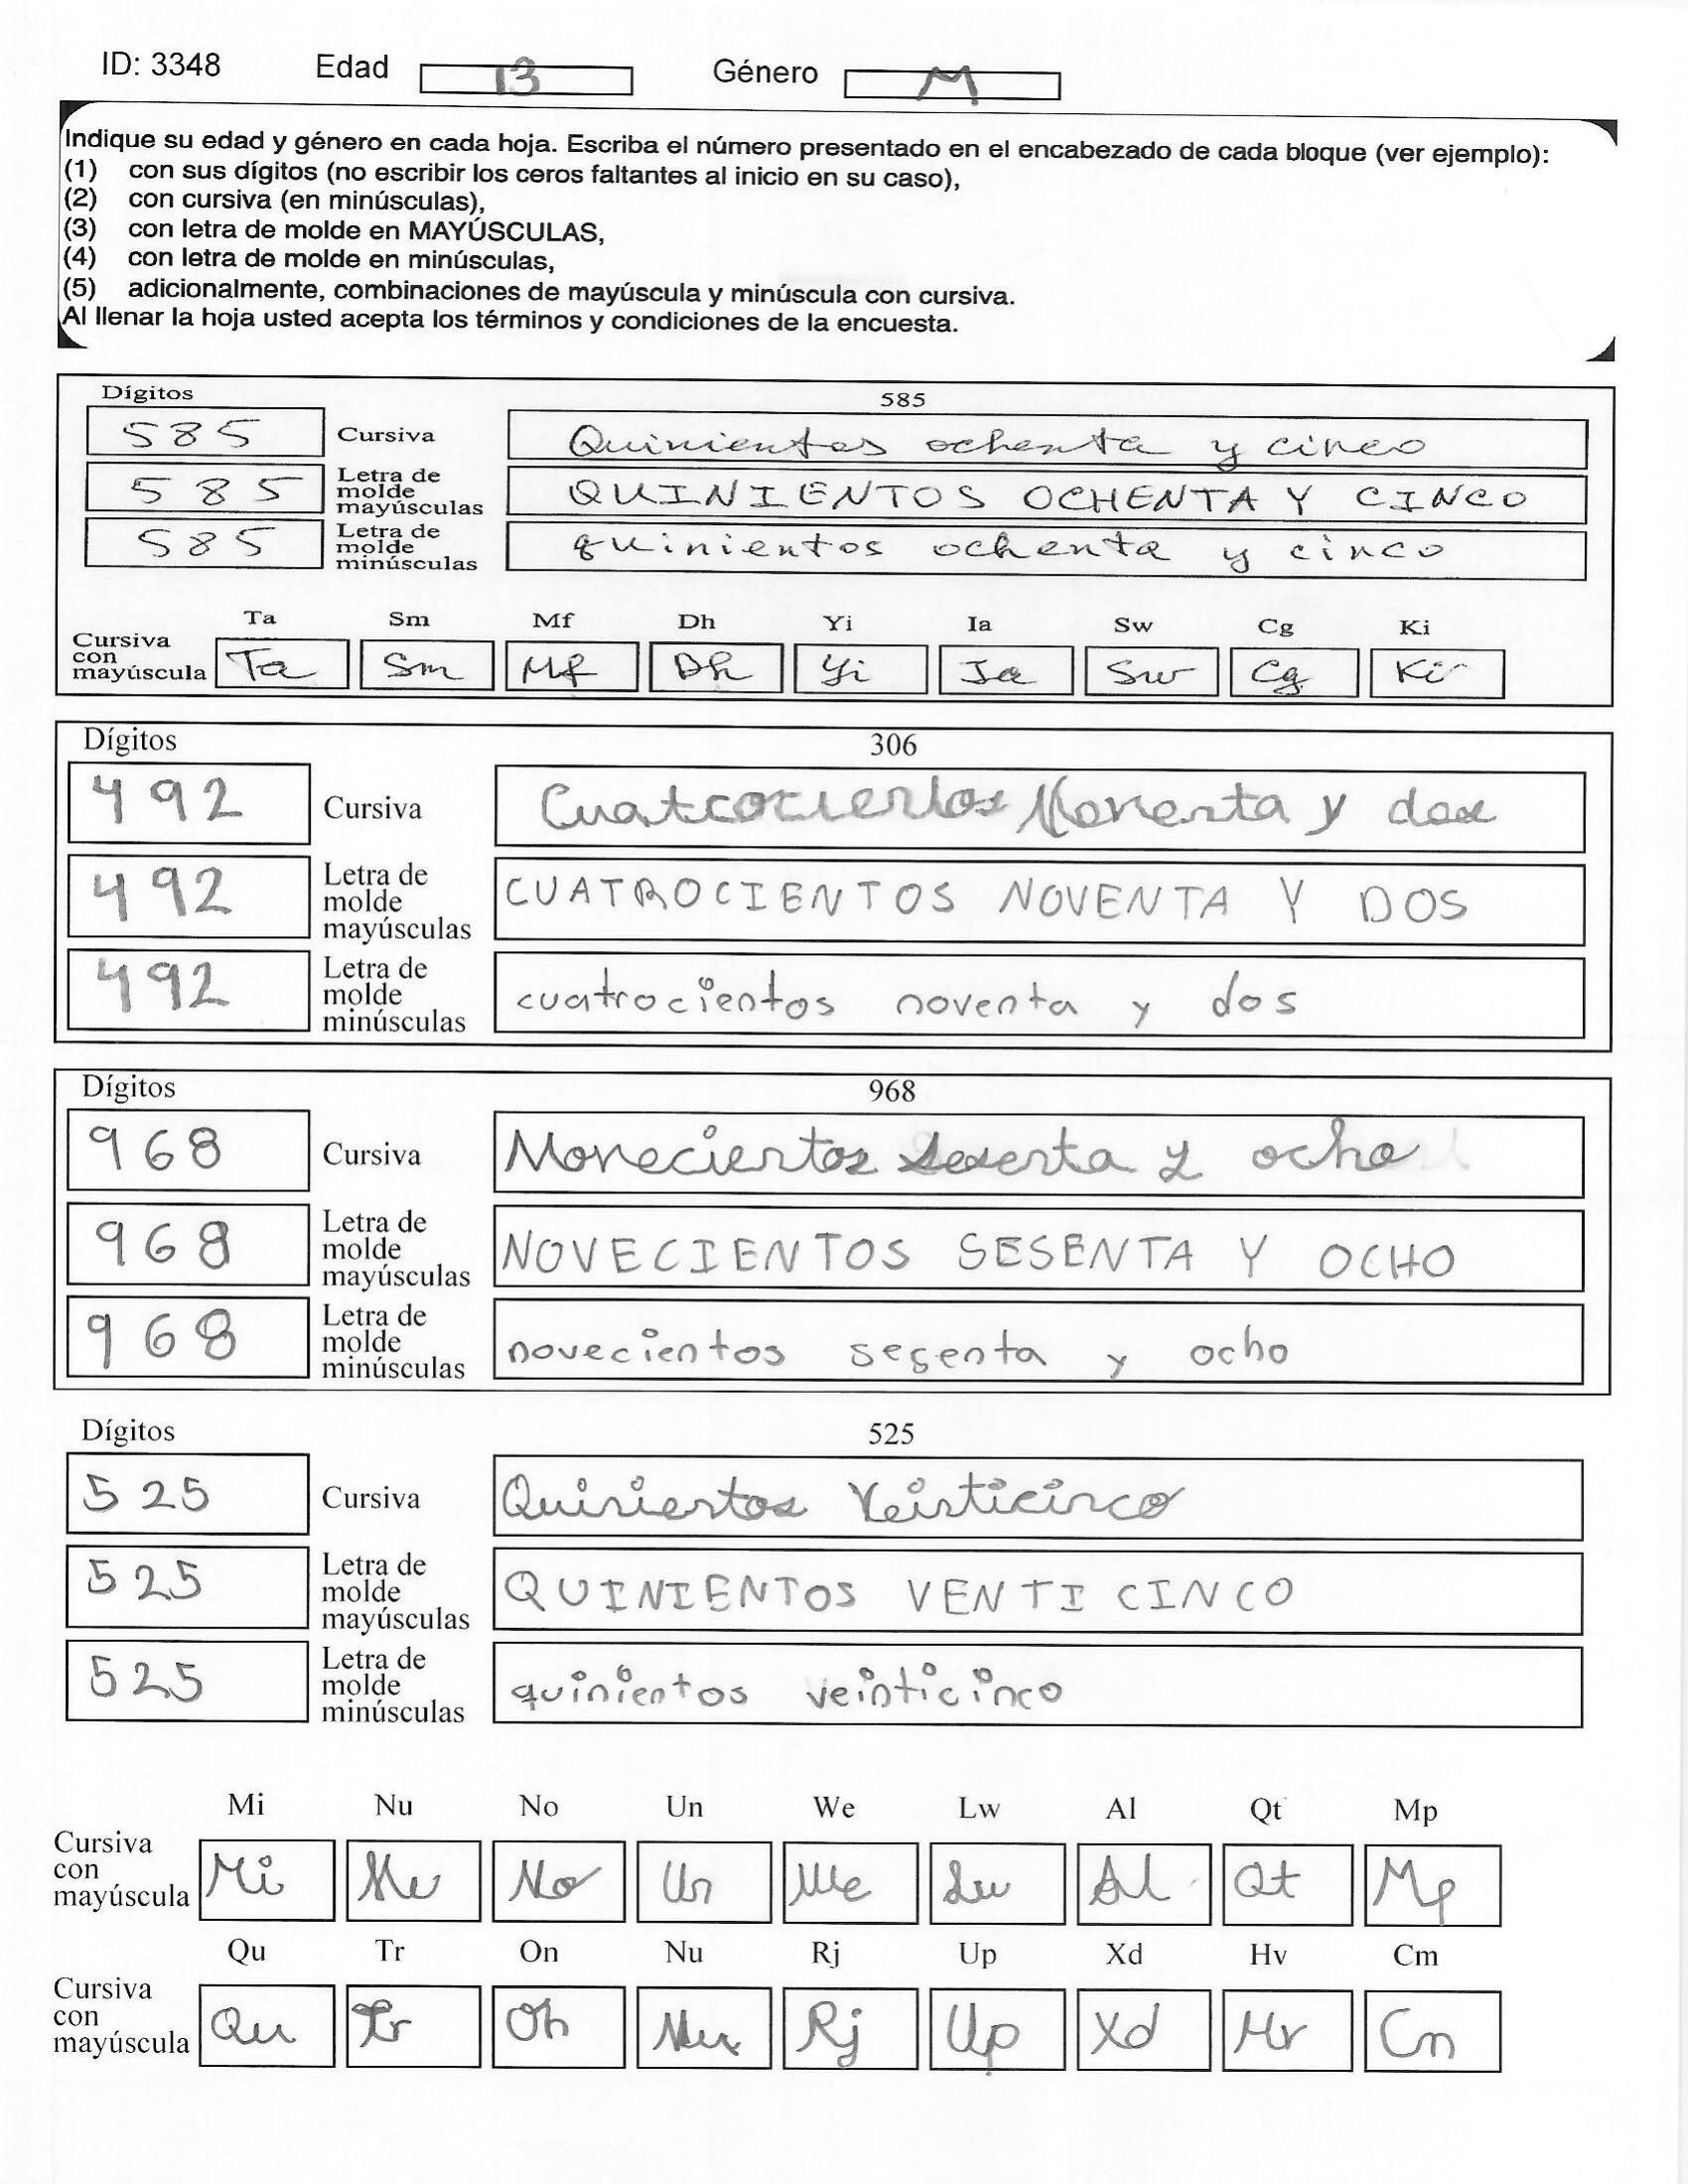 ID: 3348 Edad 13 Género M
Indique su edad y género en cada hoja. Escriba el número presentado en el encabezado de cada bloque (ver ejemplo):
(1) con sus dígitos (no escribir los ceros faltantes al inicio en su caso),
(2) con cursiva (en minúsculas),
(3) con letra de molde en MAYÚSCULAS,
(4) con letra de molde en minúsculas,
(5) adicionalmente, combinaciones de mayúscula y minúscula con cursiva.
Al llenar la hoja usted acepta los términos y condiciones de la encuesta.
Dígitos 585
585 Cursiva Quinientos ochenta y cinco
585 Letra de molde mayúsculas QUINIENTOS OCHENTA Y CINCO
585 Letra de molde minúsculas quinientos ochenta y cinco
Ta Sm Mf Dh Yi Ia Sw Cg Ki
Cursiva con mayúscula Ta Sm Mf Dh Yi Ia Sw Cg Ki
Dígitos 306
492 Cursiva Cuatrocientos Noventa y dos
492 Letra de molde mayúsculas CUATROCIENTOS NOVENTA Y DOS
492 Letra de molde minúsculas cuatrocientos noventa y dos
Dígitos 968
968 Cursiva Novecientos sesenta y ocho
968 Letra de molde mayúsculas NOVECIENTOS SESENTA Y OCHO
968 Letra de molde minúsculas novecientos sesenta y ocho
Dígitos 525
525 Cursiva Quinientos Veinticinco
525 Letra de molde mayúsculas QUINIENTOS VENTI CINCO
525 Letra de molde minúsculas quinientos veinticinco
Mi Nu No Un We Lw Al Qt Mp
Cursiva con mayúscula Mi Nu No Un We Lw Al Qt Mp
Qu Tr On Nu Rj Up Xd Hv Cm
Cursiva con mayúscula Qu Tr On Nu Rj Up Xd Hv Cn